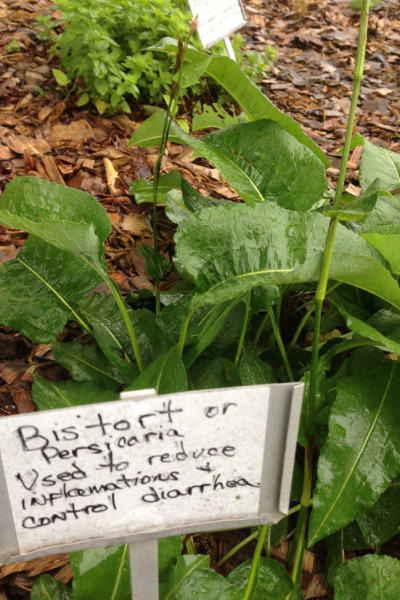 Bistort or
Persicaria
Used to reduce
inflamations &
control diarrhea.